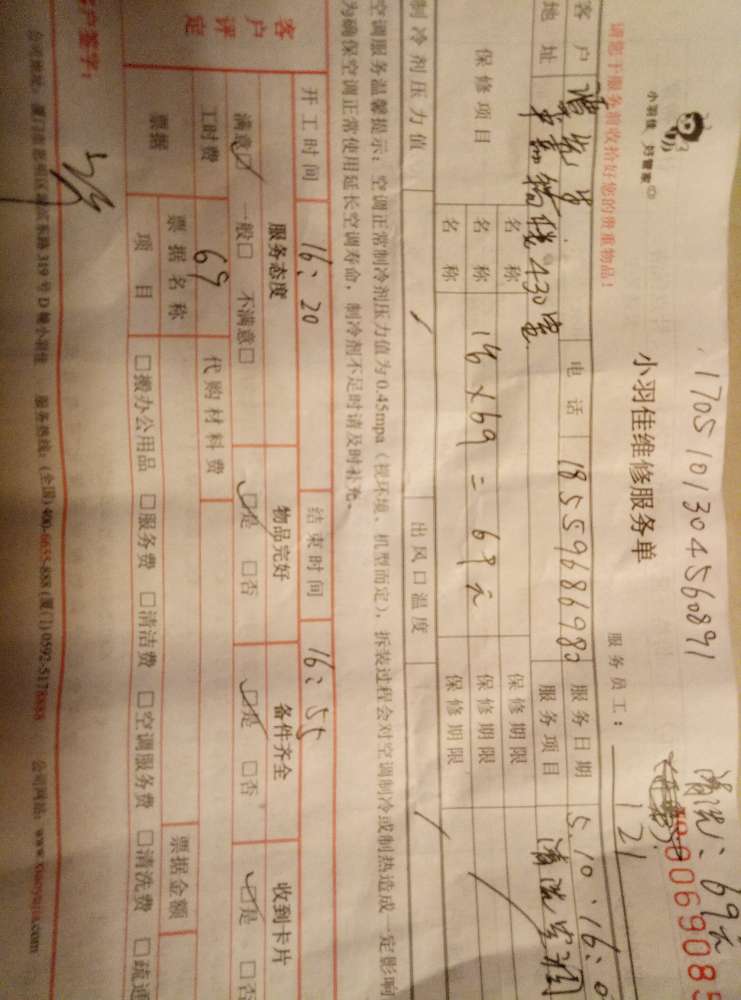 1705101304560891
清洗:69元
0069085
小羽佳 好管家
小羽佳维修服务单
服务员工:
121
请您于服务前收拾好您的贵重物品!
客户
电话 18559686980 服务日期 5.10.16:0
地址 430室 服务项目 清洗空调
保修项目 名称 保修期限
名称 1台×69=69元 保修期限
名称 保修期限
制冷剂压力值 / 出风口温度 /
空调服务温馨提示:空调正常制冷剂压力值为0.45mpa(视环境、机型而定),拆装过程会对空调制冷或制热造成一定影响
为确保空调正常使用延长空调寿命,制冷剂不足时请及时补充。
开工时间 16:20 结束时间 16:55
客户评定 服务态度 物品完好 备件齐全 收到卡片
满意☑ 一般□ 不满意□ ☑是 □否 ☑是 □否 ☑是 □否
工时费 69 代购材料费
票据 票据名称 票据金额
项目 □搬办公用品 □服务费 □清洁费 □空调服务费 □清洗费 □疏通
客户签字:
公司地址:厦门市思明区 349号D幢小羽佳 服务热线:(全国)400-6655-888(厦门)0592-5178888 公司网站:www.xiaoyujia.com